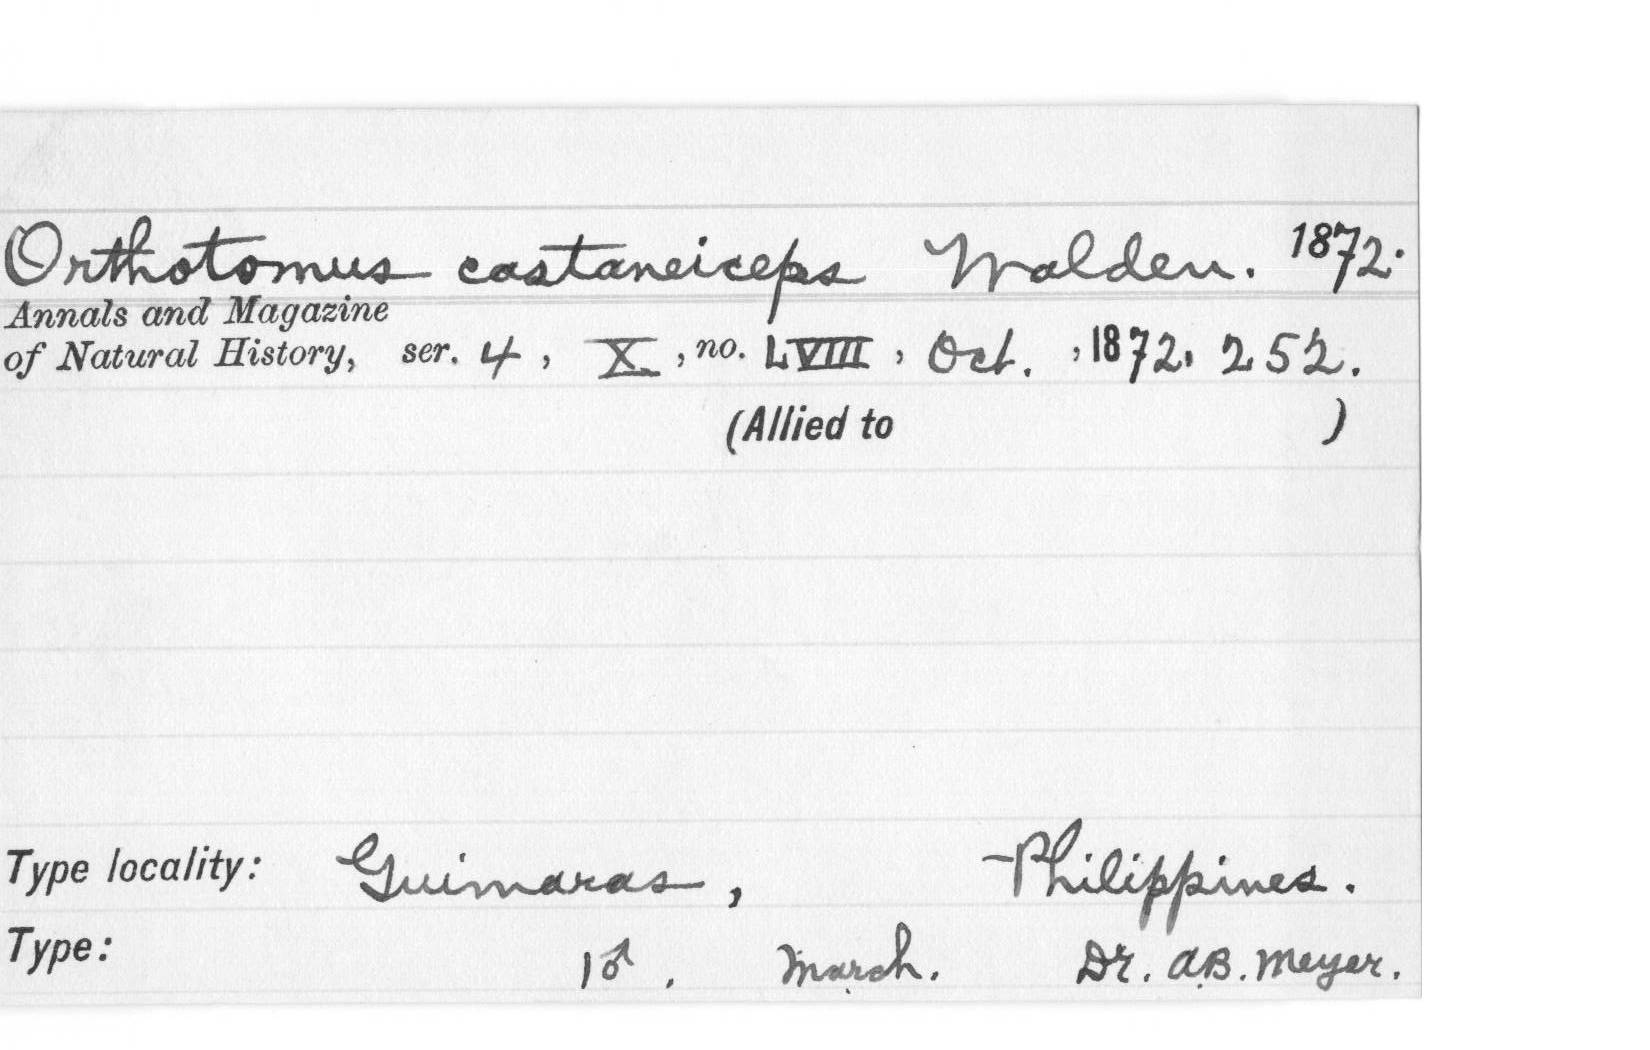 Orthotomus castaneiceps Walden. 1872.
Annals and Magazine
of Natural History, ser. 4, X, no. LVIII, Oct., 1872, 252.
(Allied to )
Type locality: Guimaras, Philippines.
Type: 1♂. March. Dr. A.B. Meyer.